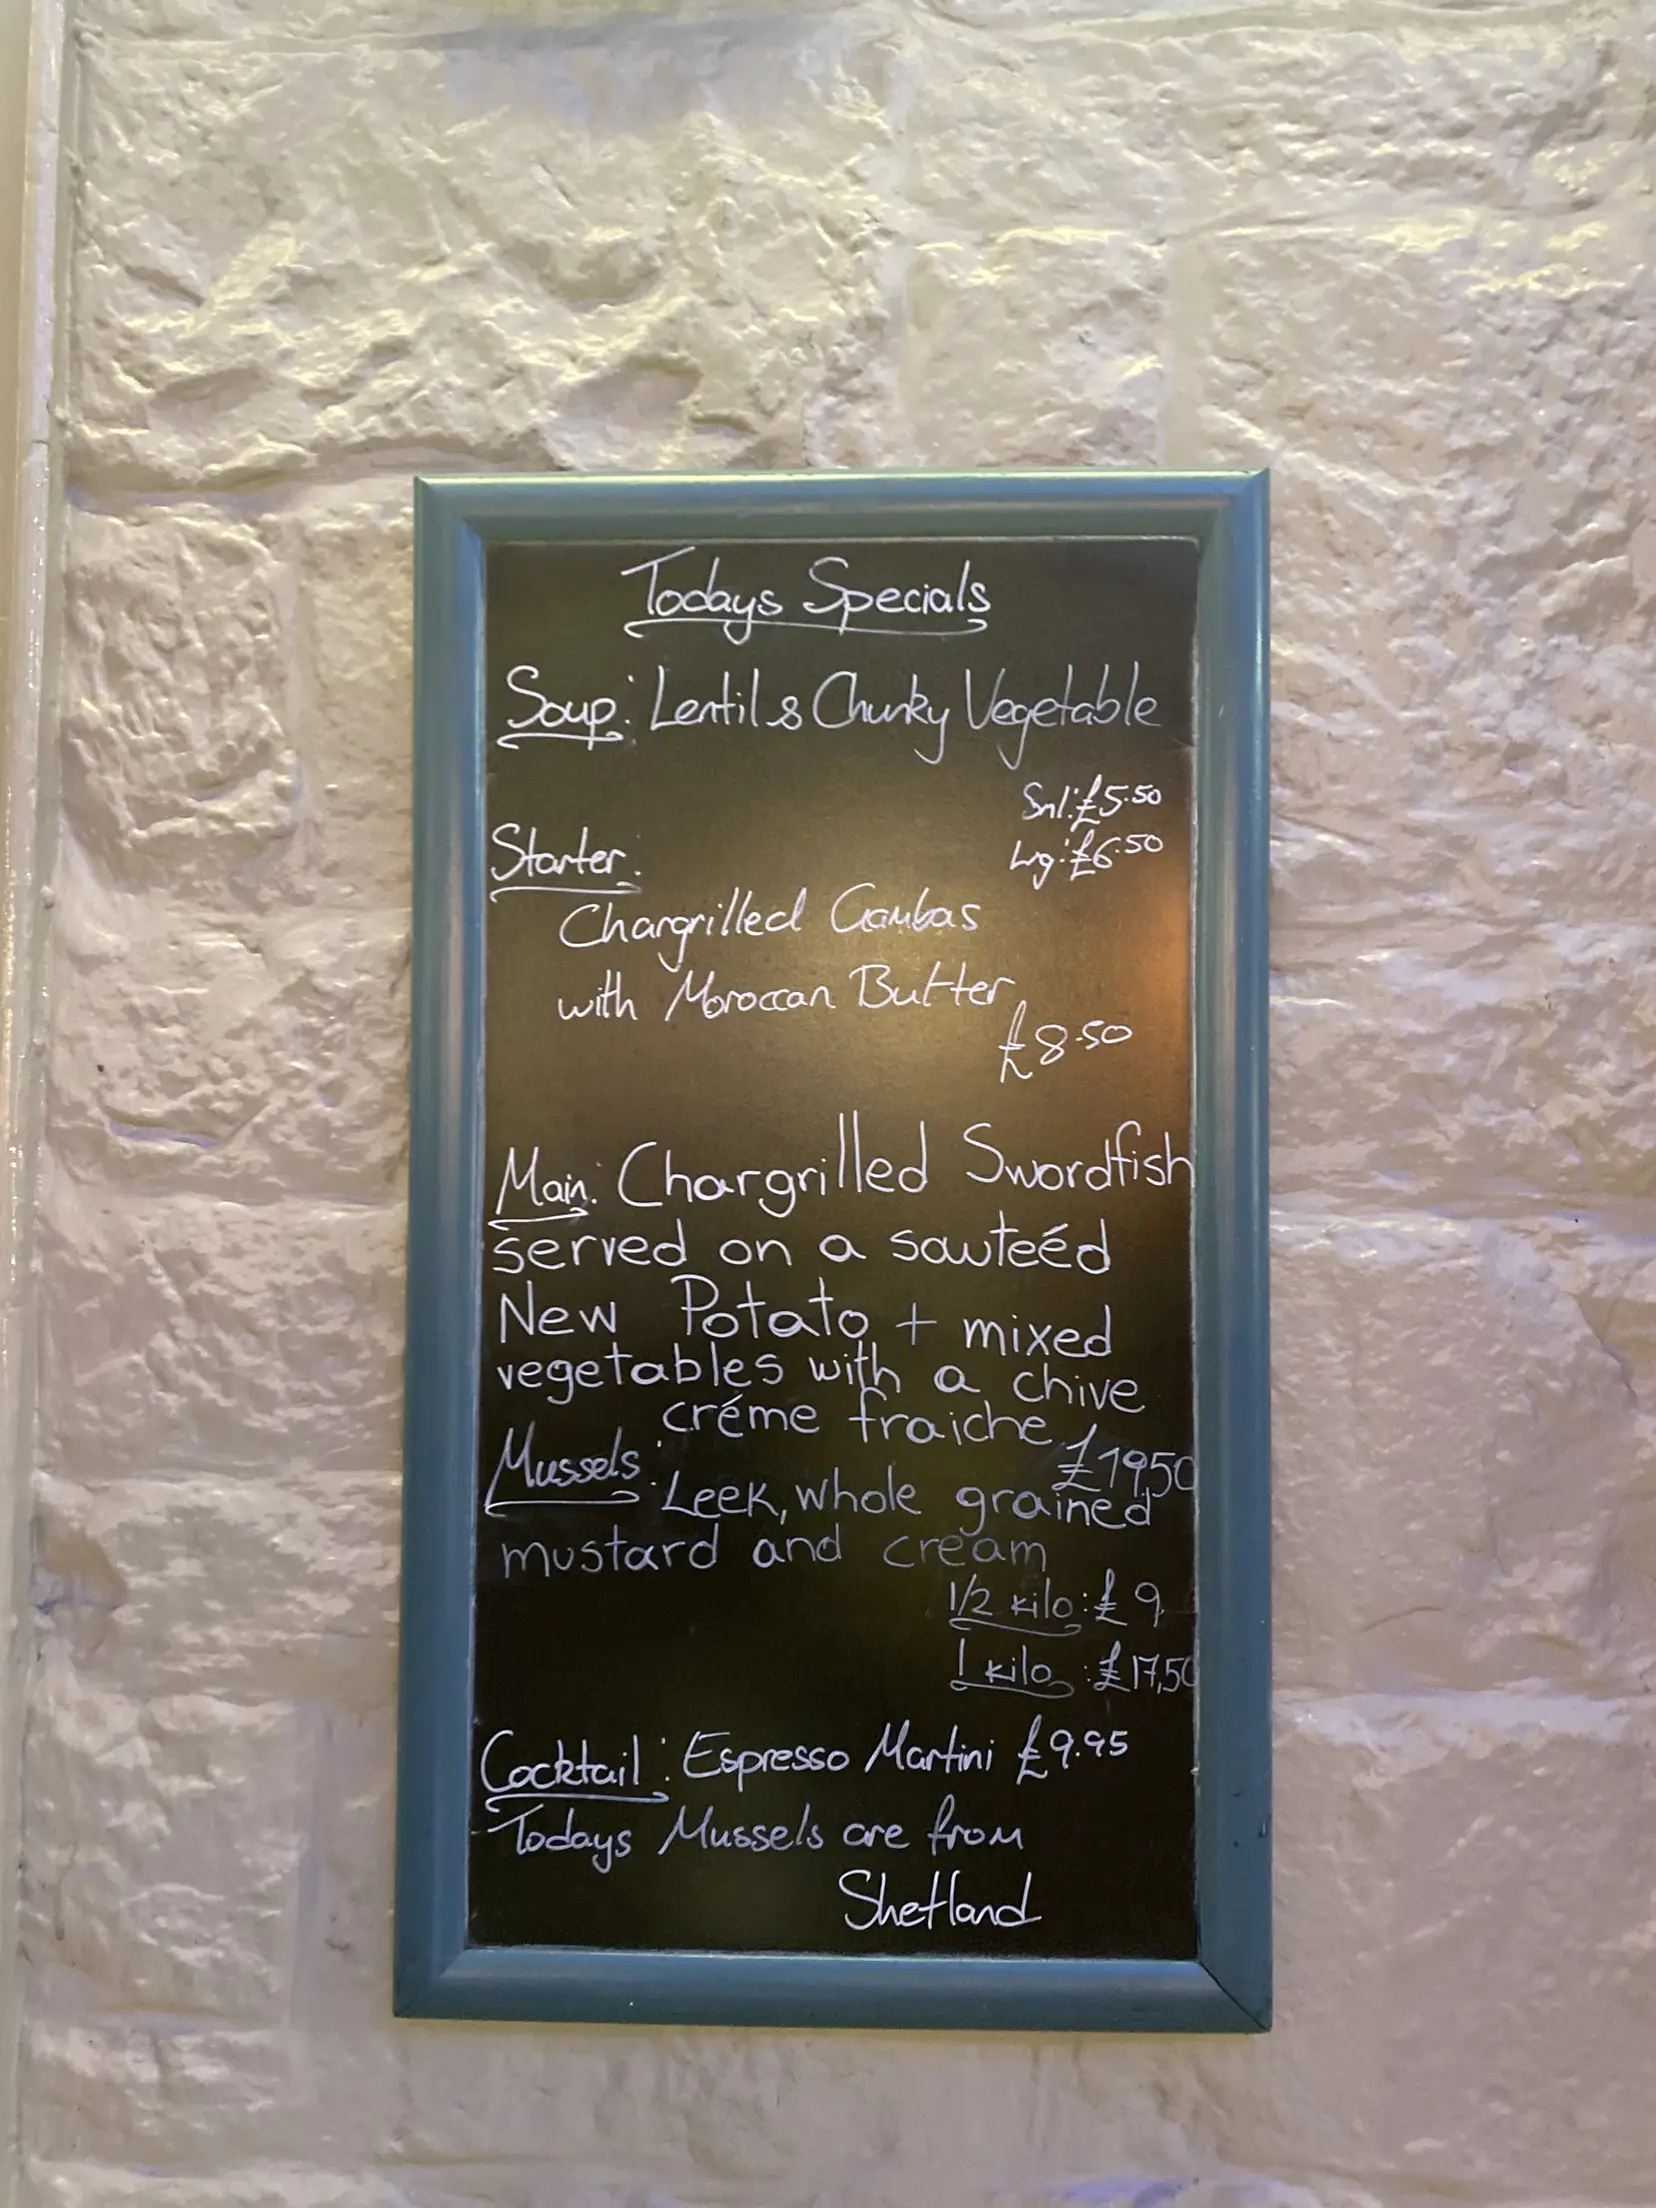 Todays Specials
Soup: Lentil & Chunky Vegetable
Sml: £5.50
Lrg: £6.50
Starter:
Chargrilled Gambas
with Moroccan Butter
£8.50
Main: Chargrilled Swordfish
served on a sauteéd
New Potato + mixed
vegetables with a chive
créme fraiche £19,50
Mussels: Leek, whole grained
mustard and cream
1/2 kilo: £9
1 kilo: £17,50
Cocktail: Espresso Martini £9.95
Todays Mussels are from
Shetland